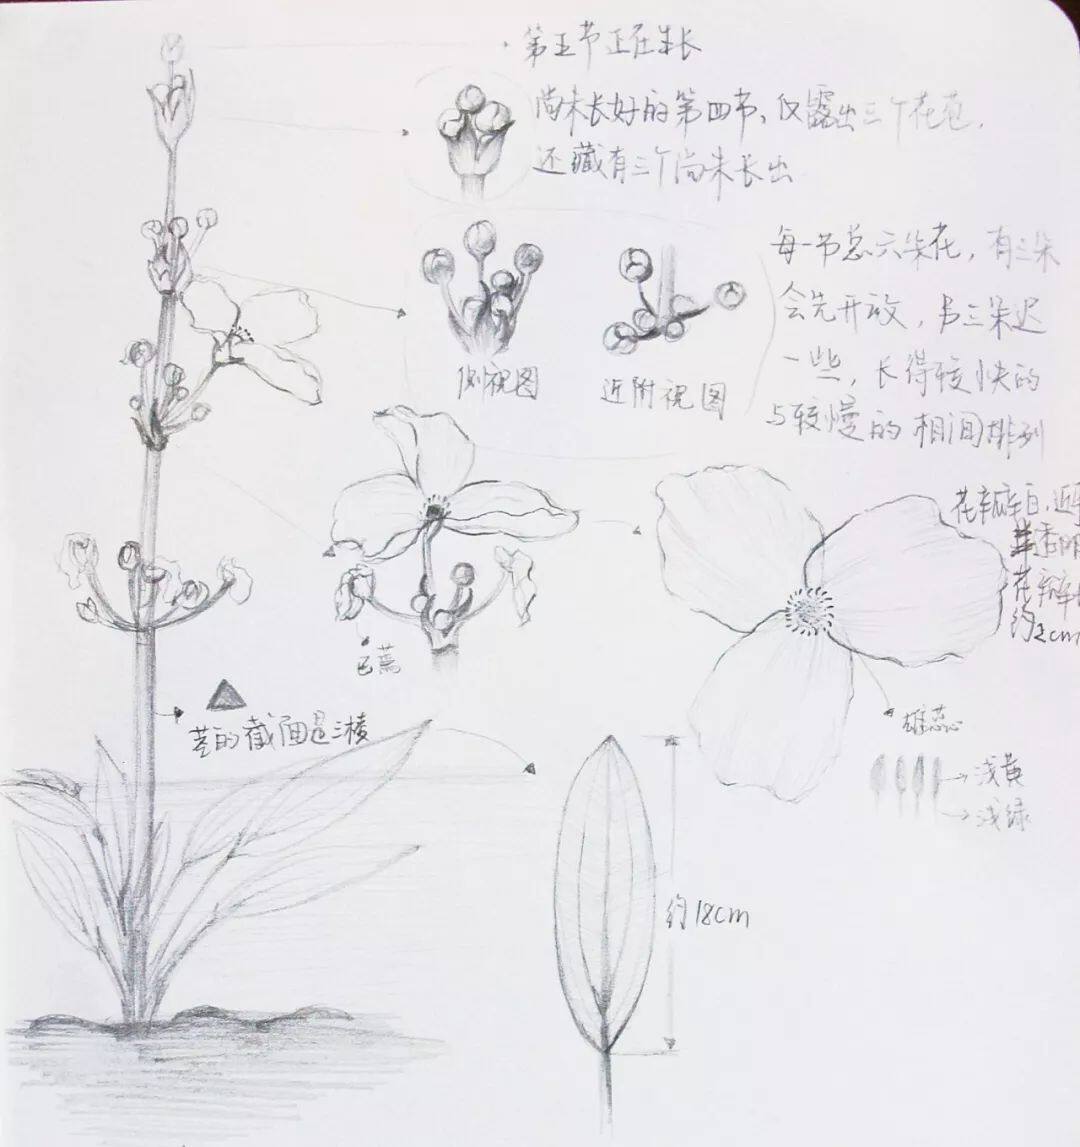 第五节正在生长
尚未长好的第四节,仅露出三个花苞,
还藏有三个尚未长出
每一节总六朵花,有三朵
会先开放,另三朵迟
一些,长得较快的
与较慢的相间排列
侧视图
近俯视图
花瓣白,近
半透明
花瓣
约2cm
已蔫
茎的截面是三棱
雄蕊
浅黄
浅绿
约18cm